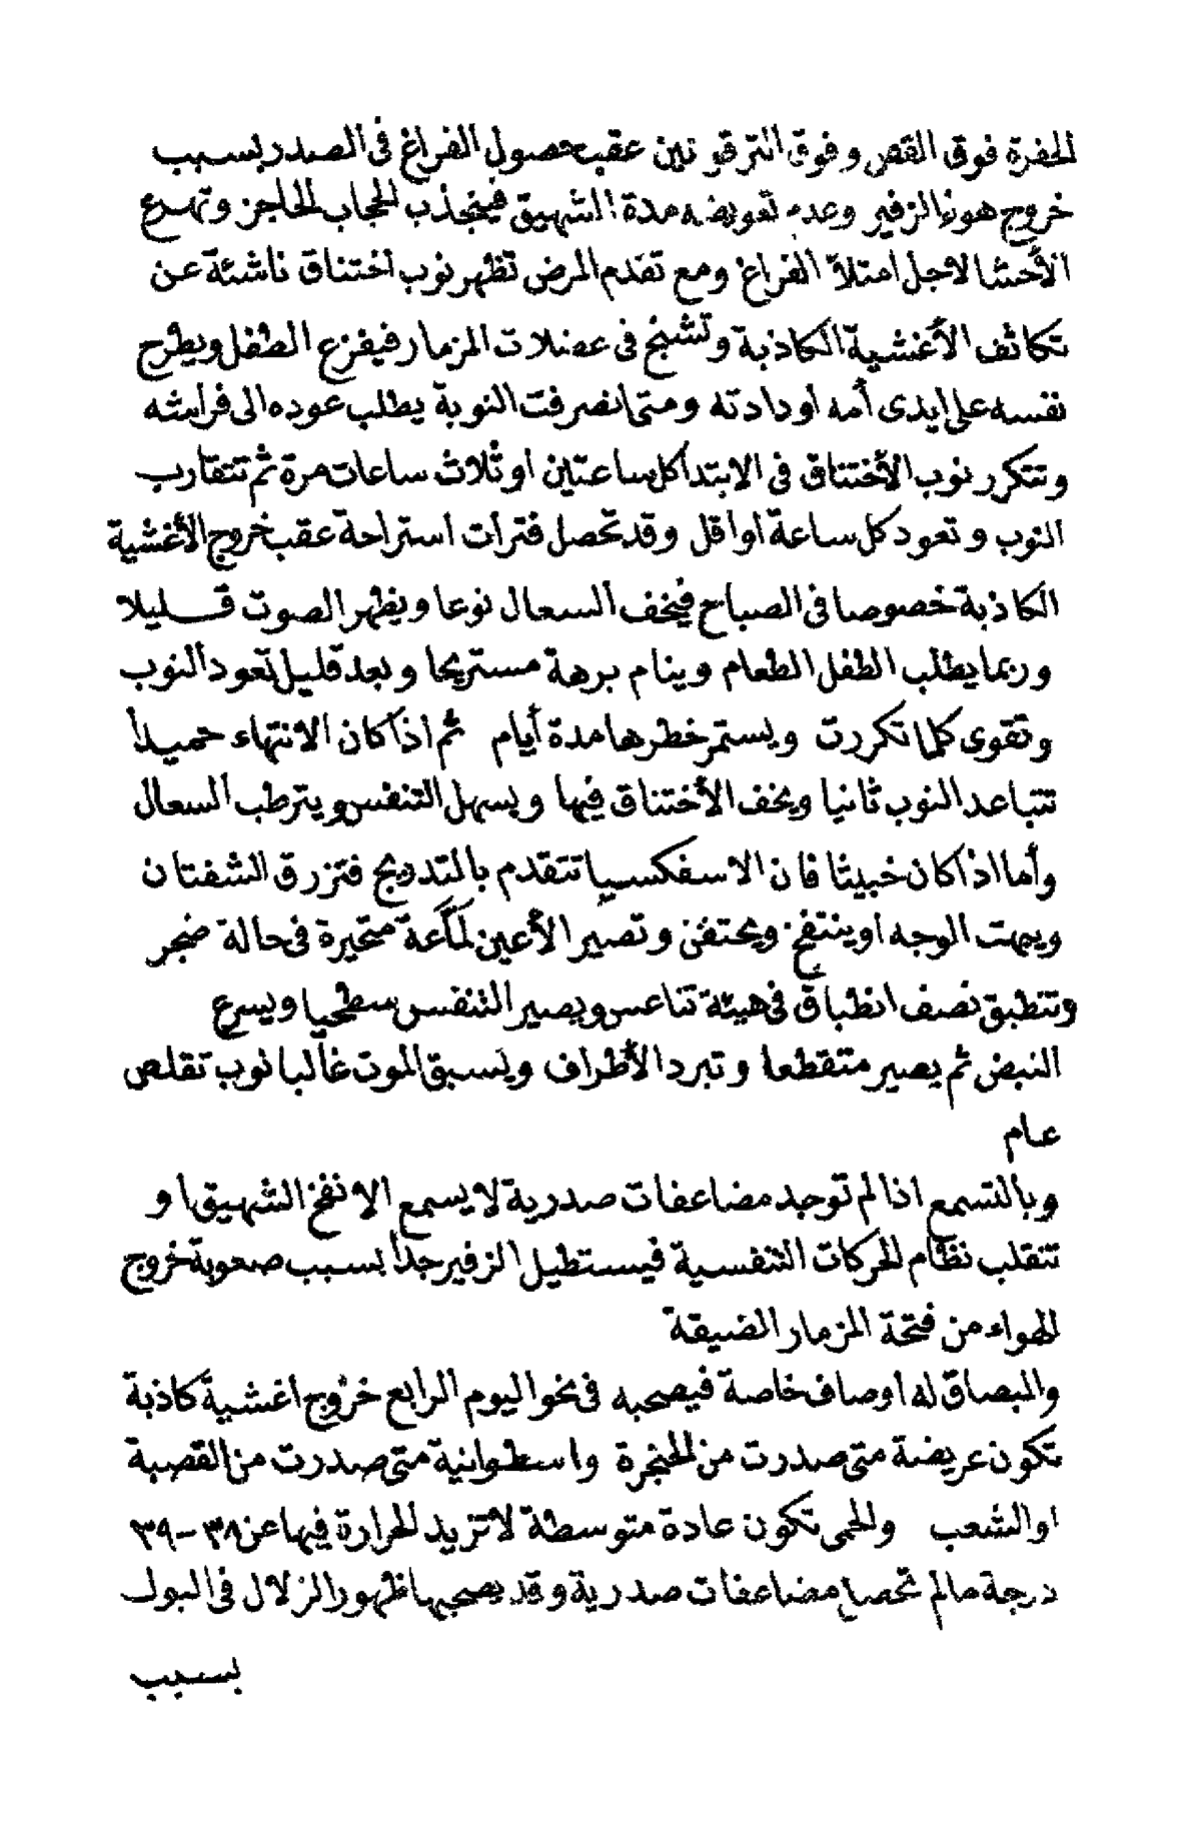 الحفرة فوق القص وفوق الترقوتين عقب حصول الفراغ فى الصدر بسبب
خروج هواء الزفير وعدم تعويضه مدة الشهيق فينجذب الحجاب الحاجز وتهرع
الأحشا لاجل امتلأ الفراغ ومع تقدم المرض تظهر نوب اختناق ناشئة عن
تكاثف الأغشية الكاذبة وتشنج فى عضلات المزمار فيفزع الطفل ويطرح
نفسه على ايدى أمه او دادته ومتى انصرفت النوبة يطلب عوده الى فراشه
وتتكرر نوب الأختناق فى الابتدا كل ساعتين او ثلاث ساعات مرة ثم تتقارب
النوب وتعود كل ساعة او اقل وقد تحصل فترات استراحة عقب خروج الأغشية
الكاذبة خصوصا فى الصباح فيخف السعال نوعا ويظهر الصوت قليلا
وربما يطلب الطفل الطعام وينام برهة مستريحا وبعد قليل تعود النوب
وتقوى كلما تكررت ويستمر خطرها مدة أيام ثم اذا كان الانتهاء حميدا
تتباعد النوب ثانيا ويخف الأختناق فيها ويسهل التنفس ويترطب السعال
وأما اذا كان خبيثا فان الاسفكسيا تتقدم بالتدريج فتزرق الشفتان
ويبهت الوجه او ينتفخ ويحتقن وتصير الأعين لماعة متحيرة فى حالة ضجر
وتنطبق نصف انطباق فى هيئة تناعس ويصير التنفس سطحيا ويسرع
النبض ثم يصير متقطعا وتبرد الأطراف ويسبق الموت غالبا نوب تقلص
عام
وبالتسمع اذا لم توجد مضاعفات صدرية لا يسمع الا نفخ الشهيق او
تتقلب نظام الحركات التنفسية فيستطيل الزفير جدا بسبب صعوبة خروج
الهواء من فتحة المزمار الضيقة
والبصاق له اوصاف خاصة فيصحبه فى نحو اليوم الرابع خروج اغشية كاذبة
تكون عريضة متى صدرت من الحنجرة واسطوانية متى صدرت من القصبة
او الشعب والحمى تكون عادة متوسطة لا تزيد الحرارة فيها عن ٣٨-٣٩
درجة مالم تحصل مضاعفات صدرية وقد يصحبها ظهور الزلال فى البول
بسبب